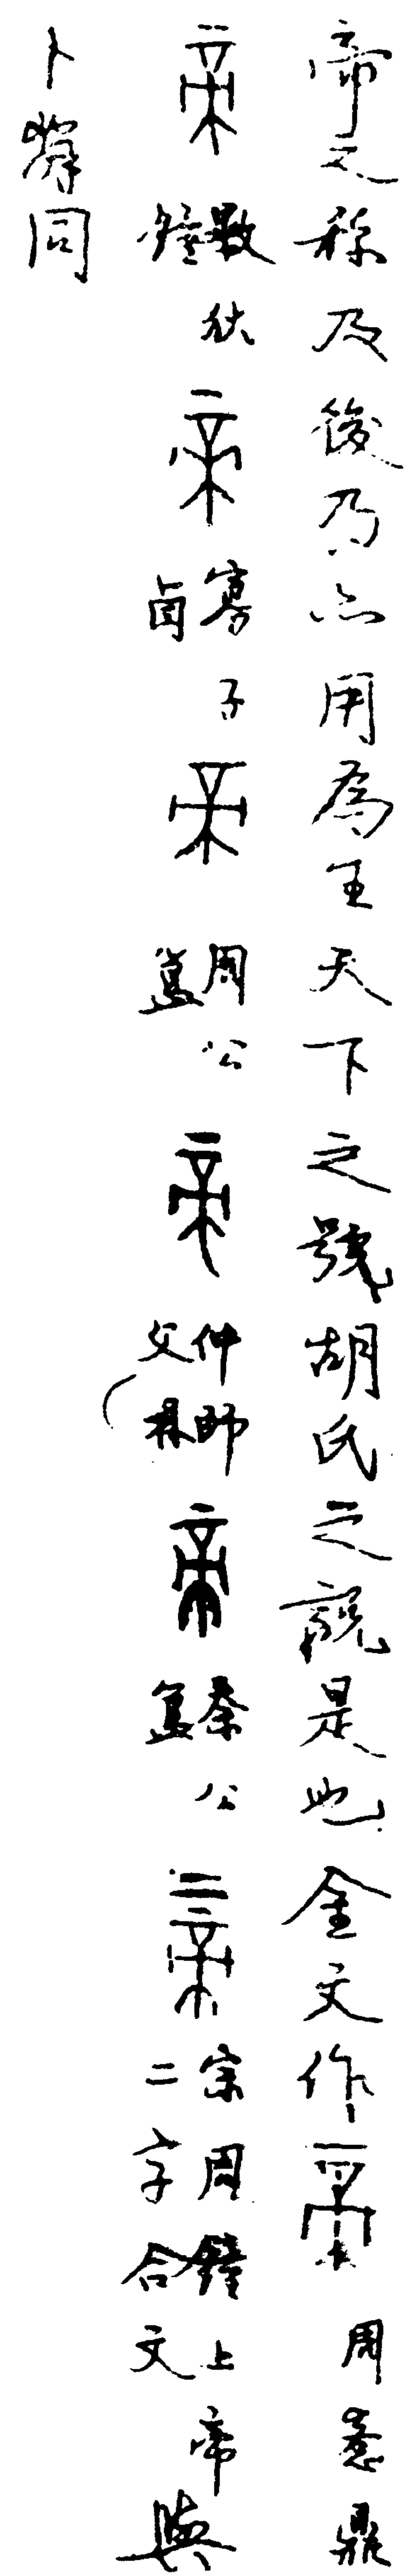 帝之稱及後乃亦用為王天下之號胡氏之說是也金文作帝周愙鼎
帝斁狄鐘帝寡子卣帝周公簋帝仲師父鼎帝秦公簋上帝宗周鐘上帝二字合文與
卜辭同